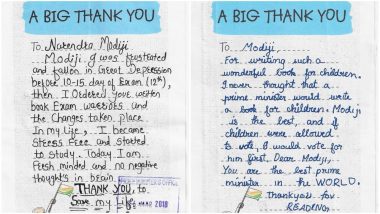 A BIG THANK YOU
To, Narendra Modiji
Modiji. I was frustrated
and fallen in Great Depression
before 10-15 day of Exam (12th),
then I Ordered your written
book Exam warriors and
the Changes taken Place
In my Life,. I became
Stress Free and started
to study. Today I am
Fresh minded and no negative
thoughts in brain.
THANK YOU, to
Save my Life
MAR 2018
A BIG THANK YOU
To, Modiji,
For writing such a
wonderful book for children.
I never thought that a
prime minister would write
a book for children. Modiji
is the best, and if
children were allowed
to vote, I would vote for
him first. Dear Modiji,
You are the best prime
minister in the WORLD.
Thankyou for
READING.